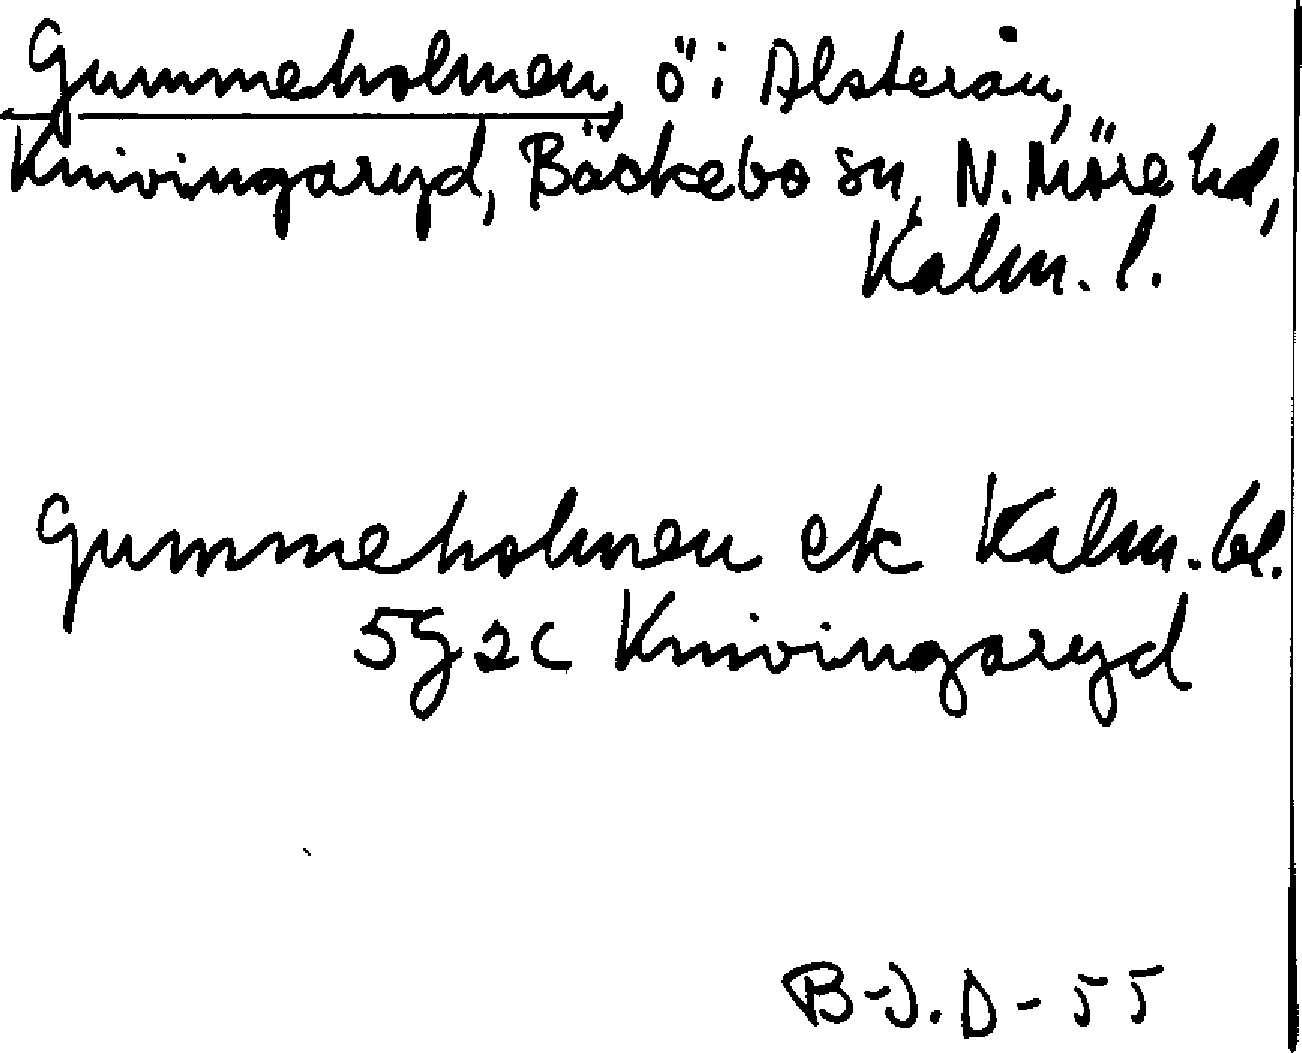 Gummeholmen, ö i Alsterån,
Knivingaryd, Bäckebo sn, N. Möre hd,
Kalm. l.
Gummeholmen ek Kalm. bl.
5g 2c Knivingaryd
B-J. D - 55